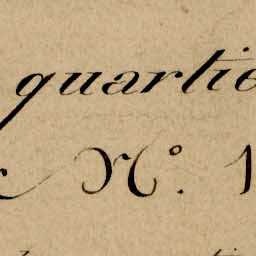 quartie
N°. 1